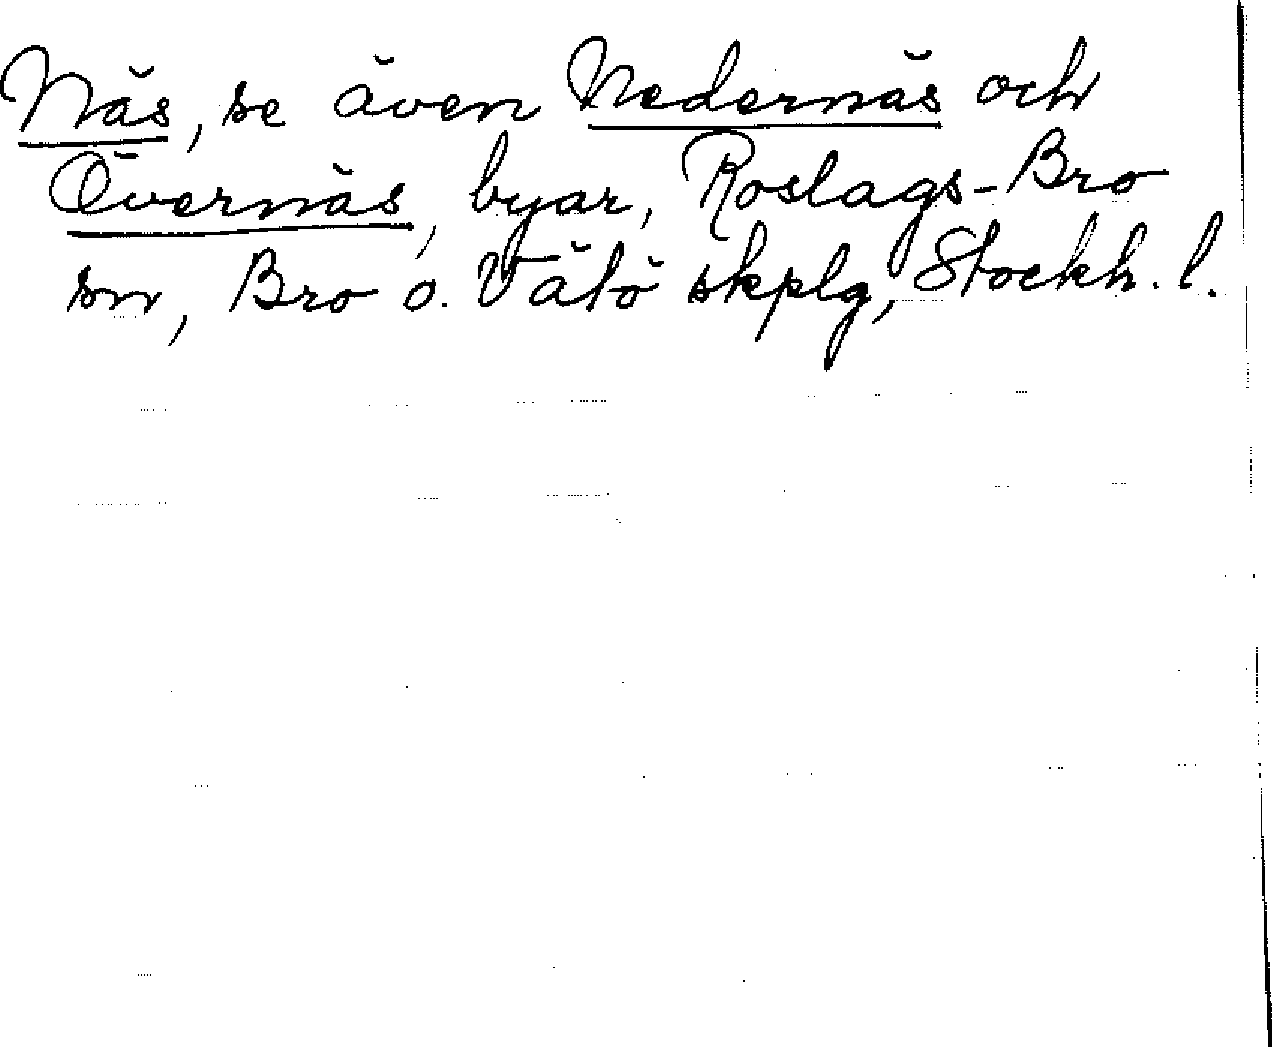 Näs, se även Nedernäs och
Övernäs, byar, Roslags-Bro
sn, Bro o. Vätö skplg, Stockh. l.